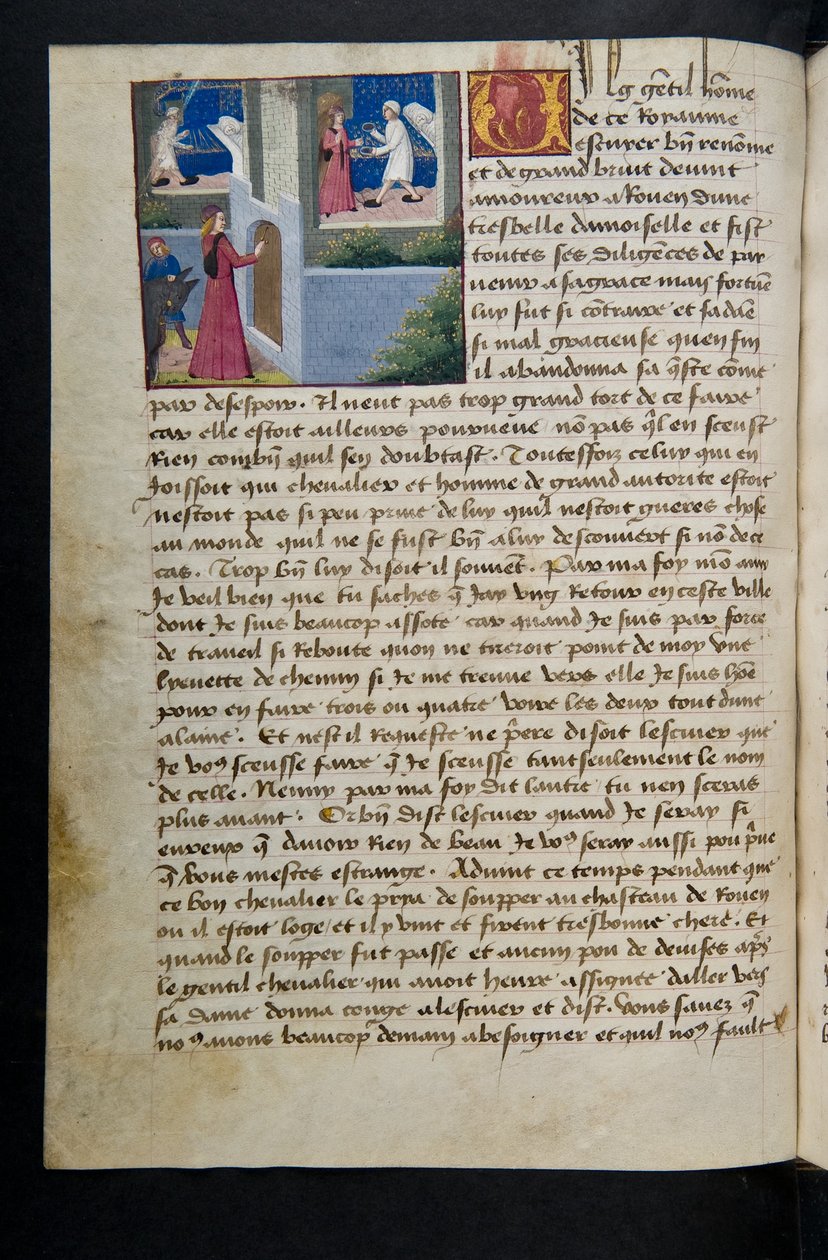 Vng gẽtil hõme
de ce Royaume
escuyer bñ renõme
et de grand bruit deuint
amoureux a Rouen dune
tresbelle damoiselle et fist
toutes ses diligẽces de par
uenir a sa grace mais fortũe
luy fut si cõtraire et sa dãe
si mal gracieuse quen fin
il abandonna sa q̃ste cõme
par desespoir. Il neut pas trop grand tort de ce faire
car elle estoit ailleurs pourueue nõ pas q̃l en sceust
Rien cõbiẽ quil sen doubtast. Touteffoiz celuy qui en
Joissoit qui cheualier et homme de grand autorite estoit
nestoit pas si peu priue de luy quil nestoit gueres chose
au monde quil ne se fust bñ a luy descouuert si nõ de ce
cas. Trop bñ luy disoit il souuẽt. Par ma foy mõ amy
Je veil bien que tu saches q̃ Jay vng Retour en ceste ville
dont Je suis beaucop assote car quand Je suis par force
de traueil si Reboute quon ne tireroit point de moy vne
lyeuette de chemin si Je me treuue vers elle Je suis hõe
pour en faire trois ou quatre voire les deux tout dune
alaine. Et nest il Requeste ne p̃ere disoit lescuier que
Je voꝰ sceusse faire q̃ Je sceusse tantseulement le nom
de celle. Nenny par ma foy dit lautre tu nen sceras
plus auant. Or bñ dist lescuier quand Je seray si
eureux q̃ dauoir Rien de beau Je voꝰ seray aussi pou p̃ue
q̃ vous mestes estrange. Aduint ce temps pendant que
ce bon cheualier le prya de soupper au chasteau de Rouen
ou il estoit loge et il y vint et firent tresbonne chere. Et
quand le soupper fut passe et aucun pou de deuises ap̃s
le gentil cheualier qui auoit heure assignee daller vers
sa dame donna conge a lescuier et dist. Vous sauez q̃
noꝰ auons beaucop demain a besoigner et quil noꝰ fault